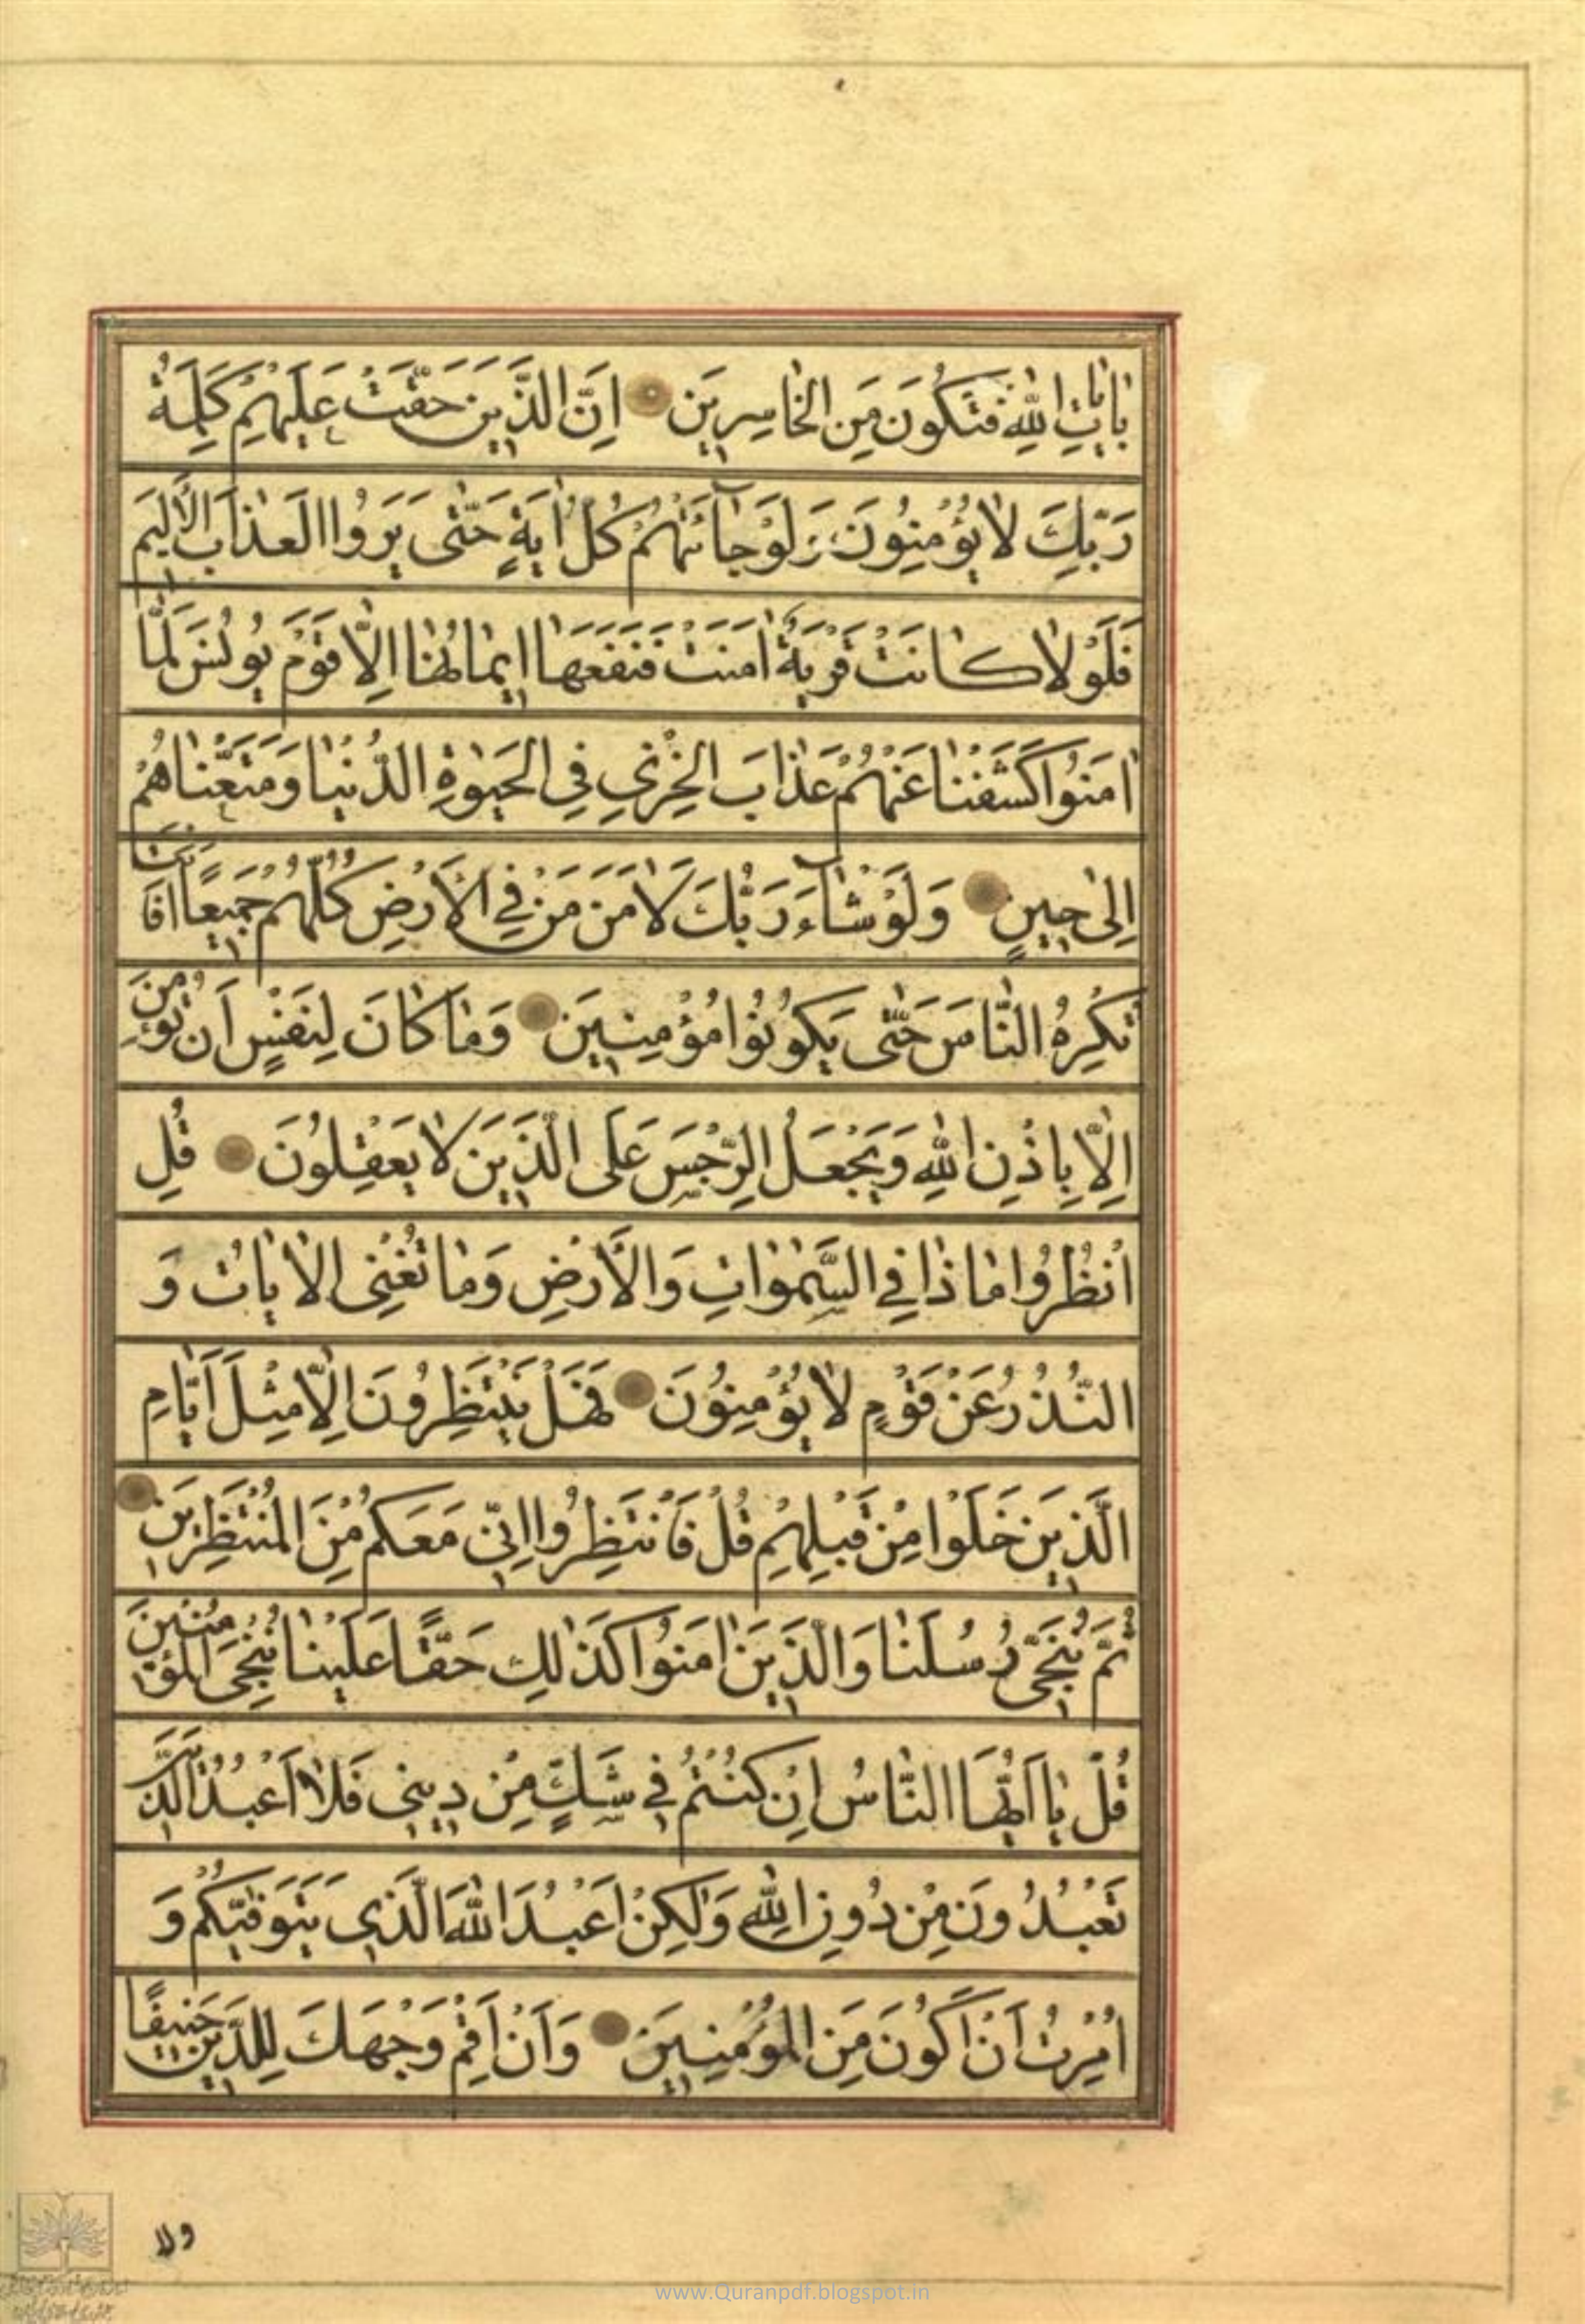 بِاٰيَاتِ اللّٰهِ فَتَكُونَ مِنَ الْخَاسِرِينَ اِنَّ الَّذِينَ حَقَّتْ عَلَيْهِمْ كَلِمَةُ
رَبِّكَ لَا يُؤْمِنُونَ وَلَوْ جَآئَتْهُمْ كُلُّ اٰيَةٍ حَتّٰى يَرَوُا الْعَذَابَ الْاَلِيمَ
فَلَوْلَا كَانَتْ قَرْيَةٌ اٰمَنَتْ فَنَفَعَهَا اِيمَانُهَا اِلَّا قَوْمَ يُونُسَ لَمَّا
اٰمَنُوا كَشَفْنَا عَنْهُمْ عَذَابَ الْخِزْيِ فِي الْحَيٰوةِ الدُّنْيَا وَمَتَّعْنَاهُمْ
اِلٰى حِينٍ وَلَوْ شَآءَ رَبُّكَ لَاٰمَنَ مَنْ فِي الْاَرْضِ كُلُّهُمْ جَمِيعًا اَفَاَنْتَ
تُكْرِهُ النَّاسَ حَتّٰى يَكُونُوا مُؤْمِنِينَ وَمَا كَانَ لِنَفْسٍ اَنْ تُؤْمِنَ
اِلَّا بِاِذْنِ اللّٰهِ وَيَجْعَلُ الرِّجْسَ عَلَى الَّذِينَ لَا يَعْقِلُونَ قُلِ
انْظُرُوا مَاذَا فِي السَّمٰوَاتِ وَالْاَرْضِ وَمَا تُغْنِي الْاٰيَاتُ وَ
النُّذُرُ عَنْ قَوْمٍ لَا يُؤْمِنُونَ فَهَلْ يَنْتَظِرُونَ اِلَّا مِثْلَ اَيَّامِ
الَّذِينَ خَلَوْا مِنْ قَبْلِهِمْ قُلْ فَانْتَظِرُوا اِنِّي مَعَكُمْ مِنَ الْمُنْتَظِرِينَ
ثُمَّ نُنَجِّي رُسُلَنَا وَالَّذِينَ اٰمَنُوا كَذٰلِكَ حَقًّا عَلَيْنَا نُنْجِي الْمُؤْمِنِينَ
قُلْ يَا اَيُّهَا النَّاسُ اِنْ كُنْتُمْ فِي شَكٍّ مِنْ دِينِي فَلَا اَعْبُدُ الَّذِينَ
تَعْبُدُونَ مِنْ دُونِ اللّٰهِ وَلٰكِنْ اَعْبُدُ اللّٰهَ الَّذِي يَتَوَفّٰيكُمْ وَ
اُمِرْتُ اَنْ اَكُونَ مِنَ الْمُؤْمِنِينَ وَاَنْ اَقِمْ وَجْهَكَ لِلدِّينِ حَنِيفًا
ولا
www.Quranpdf.blogspot.in